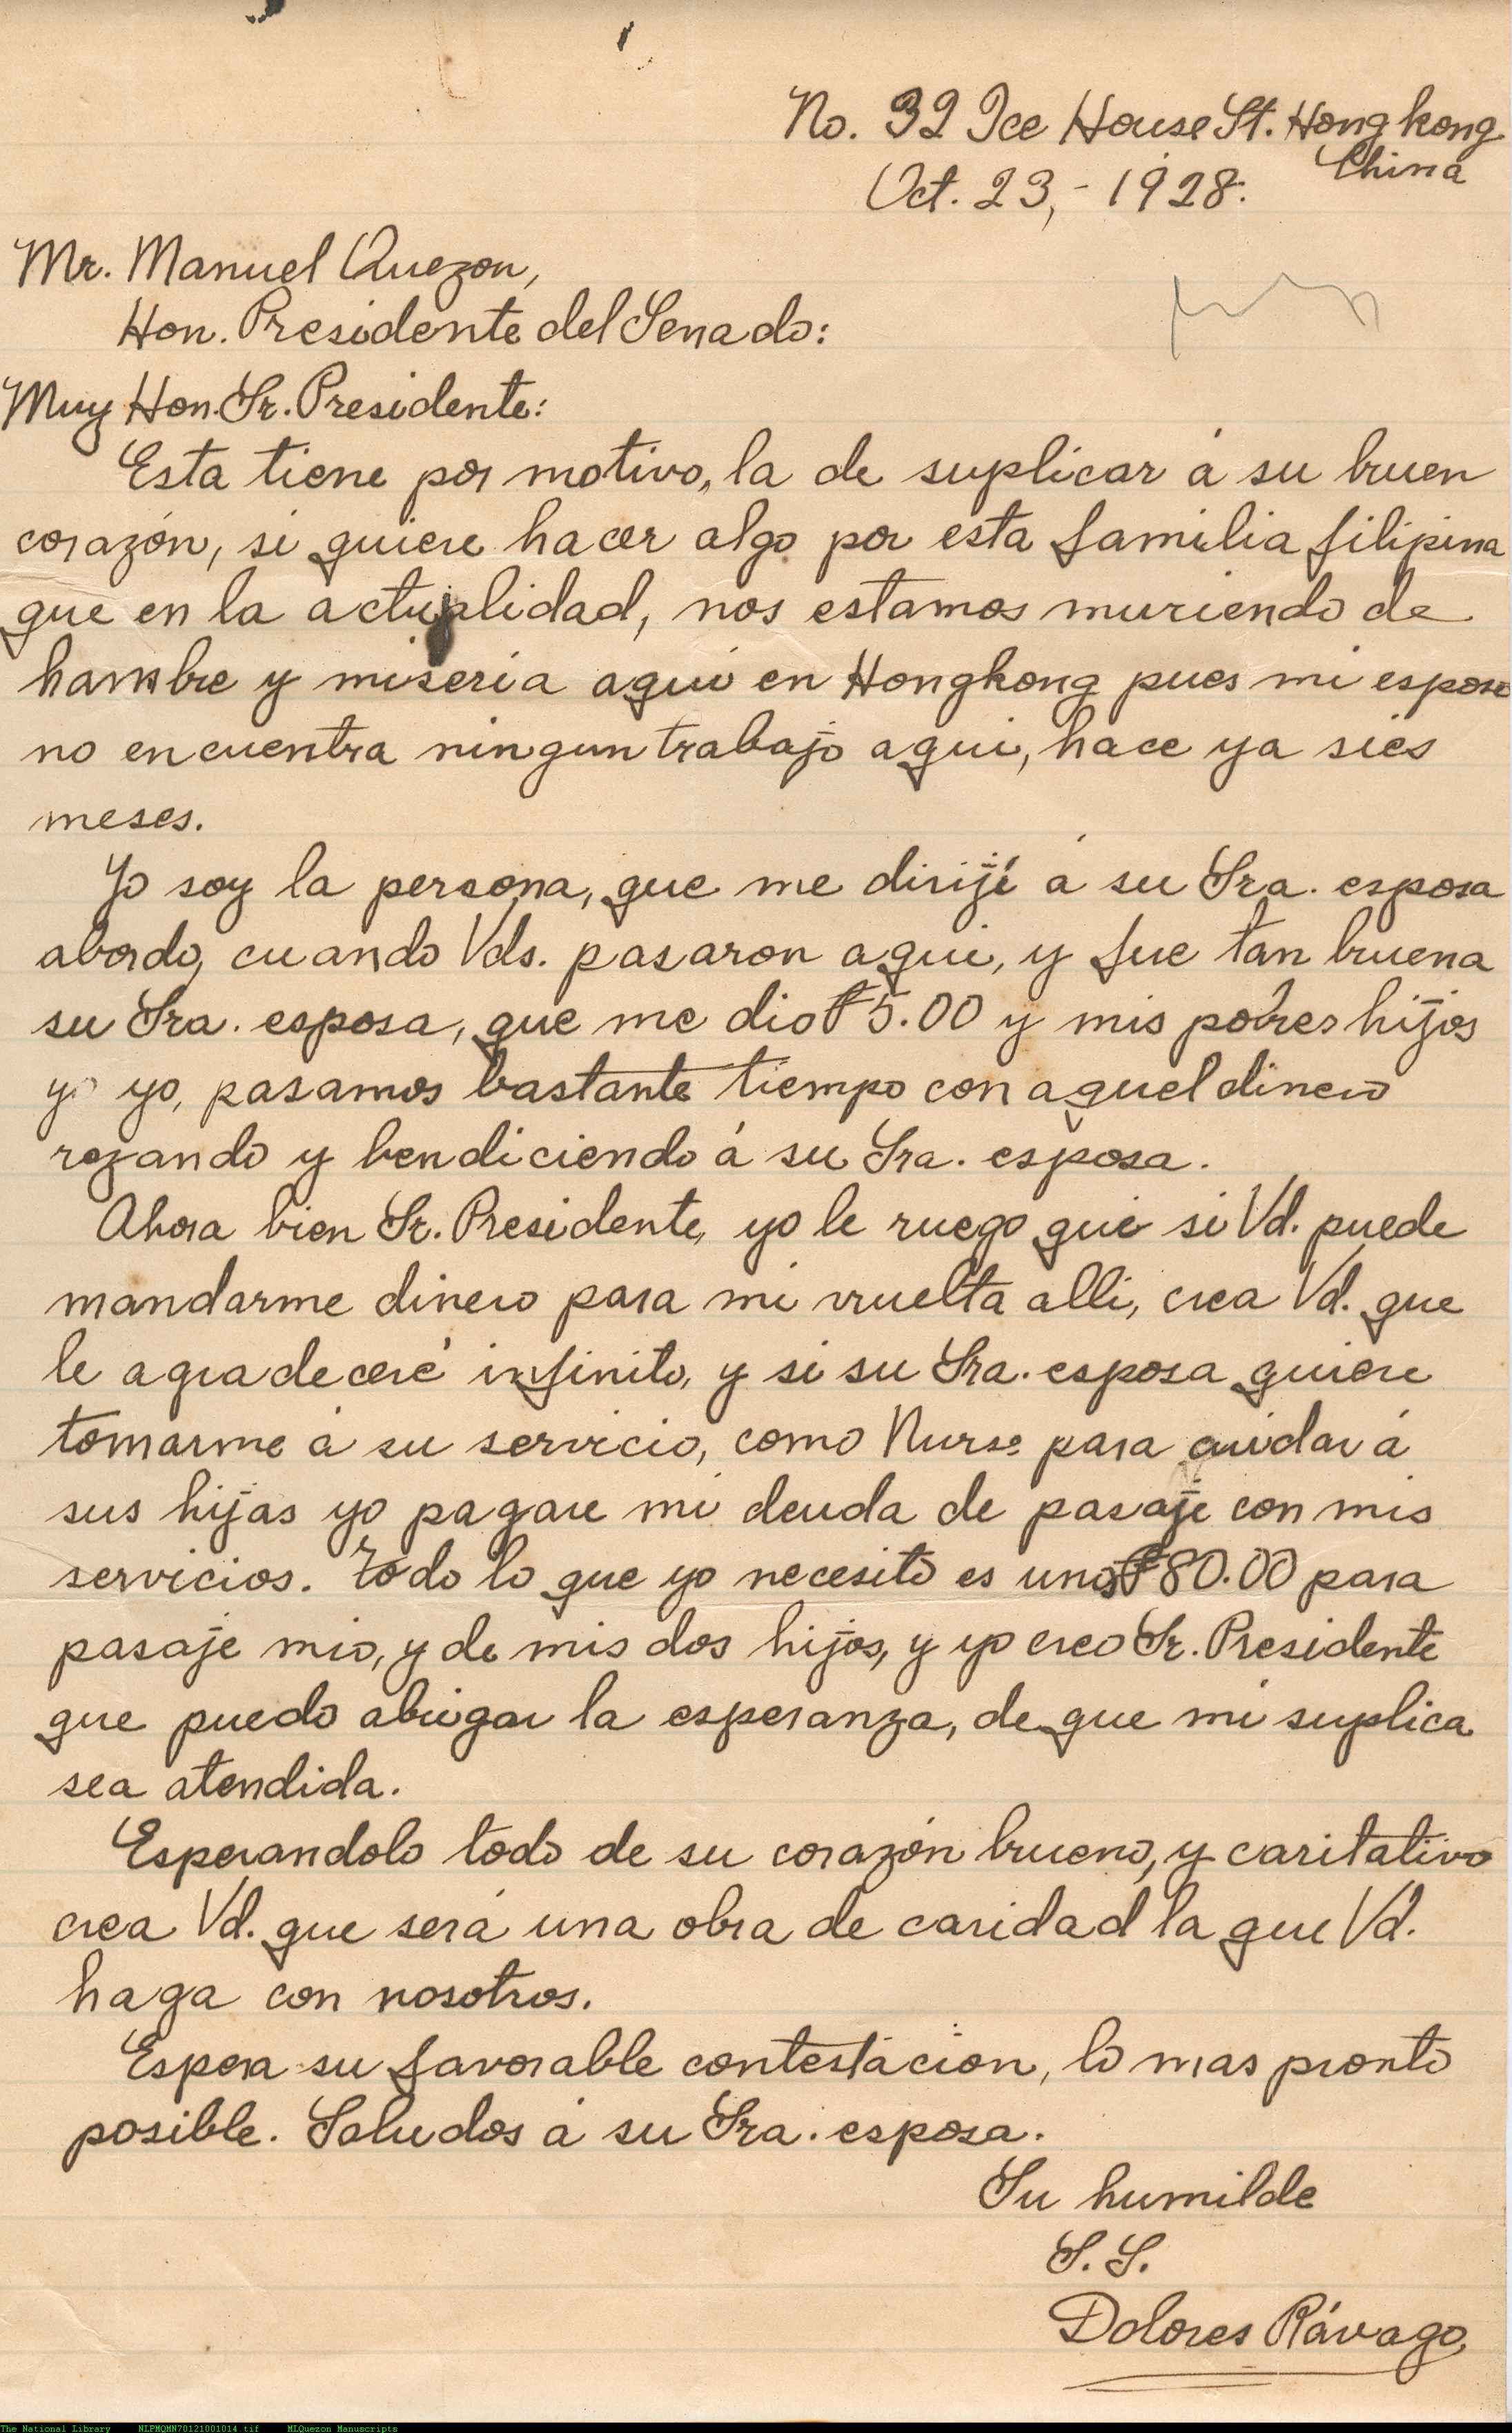 No. 32 Ice House St. Hongkong
China
Oct. 23,- 1928.
Mr. Manuel Quezon,
Hon. Presidente del Senado:
Muy Hon. Sr. Presidente:
Esta tiene por motivo, la de suplicar á su buen
corazón, si quiere hacer algo por esta familia filipina
que en la actualidad, nos estamos muriendo de
hambre y miseria aqui en Hongkong pues mi esposo
no encuentra ningun trabajo aqui, hace ya sies
meses.
Yo soy la persona, que me dirijé á su Sra. esposa
abordo, cuando Vds. pasaron aqui, y fue tan buena
su Sra. esposa, que me dio ₱5.00 y mis pobres hijos
y yo, pasamos bastante tiempo con aquel dinero
rezando y bendiciendo á su Sra. esposa.
Ahora bien Sr. Presidente, yo le ruego que si Vd. puede
mandarme dinero para mi vuelta alli, crea Vd. que
le agradeceré infinito, y si su Sra. esposa quiere
tomarme á su servicio, como Nurse para cuidar á
sus hijas yo pagare mi deuda de pasaje con mis
servicios. Todo lo que yo necesito es unos ₱80.00 para
pasaje mio, y de mis dos hijos, y yo creo Sr. Presidente
que puedo abrigar la esperanza, de que mi suplica
sea atendida.
Esperandolo todo de su corazón bueno, y caritativo
crea Vd. que será una obra de caridad la que Vd.
haga con nosotros.
Espera su favorable contestacion, lo mas pronto
posible. Saludos á su Sra. esposa.
Su humilde
S. S.
Dolores Rávago
The National Library NLPMQMN70121001014.tif MLQuezon Manuscripts